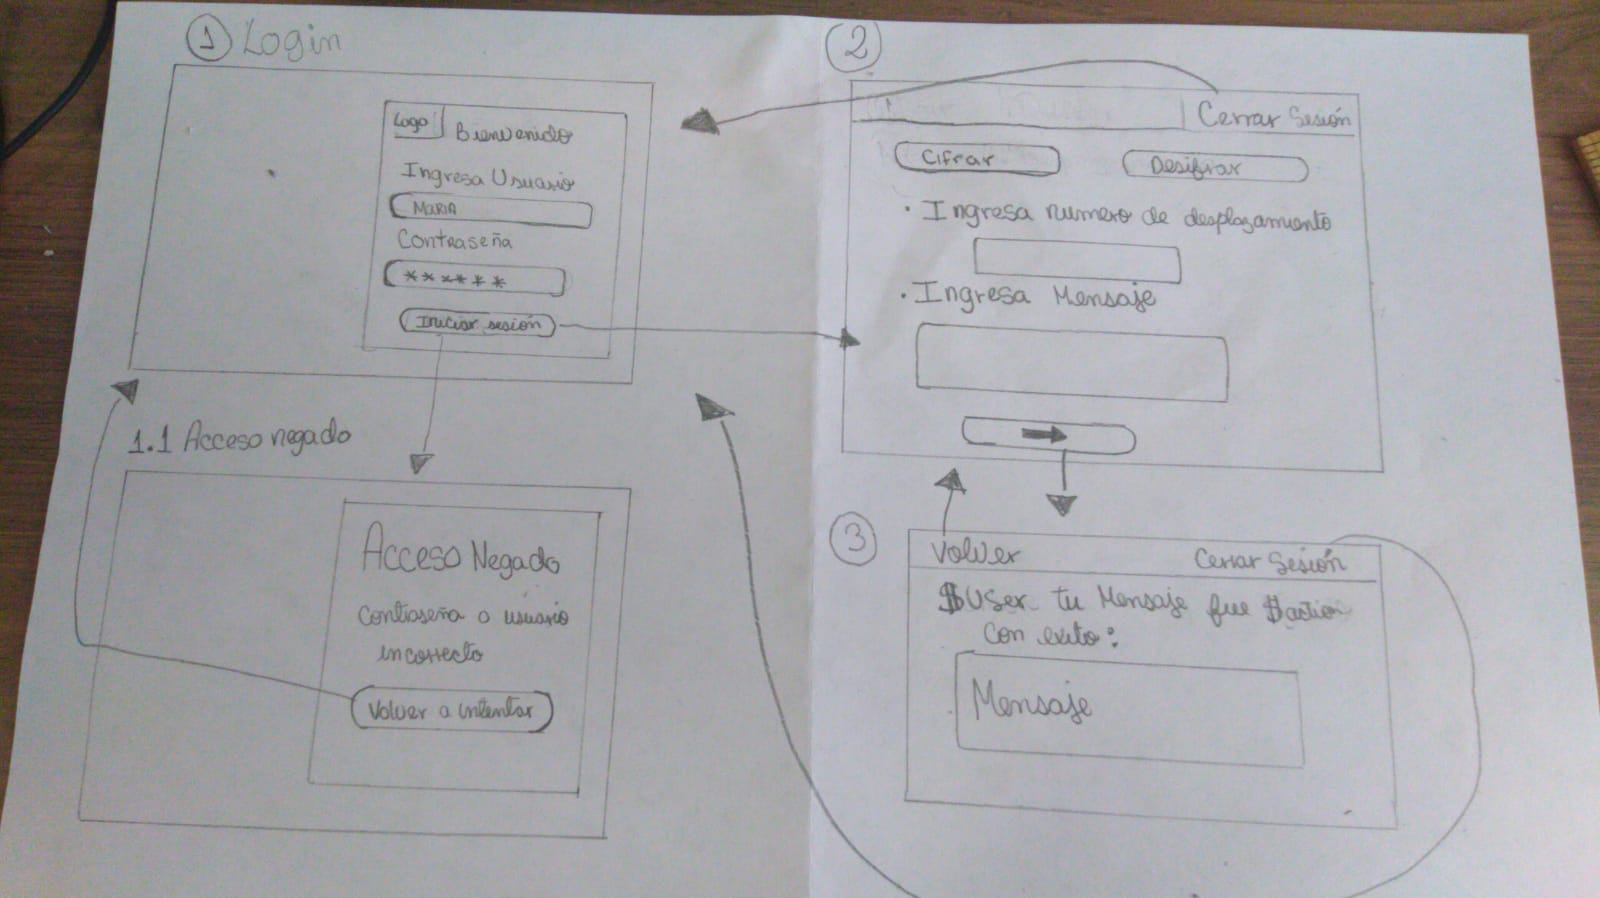 1 Login
Logo
Bienvenido
Ingresa Usuario
MARIA
Contraseña
******
Iniciar sesión
1.1 Acceso negado
Acceso Negado
Contraseña o usuario
incorrecto
Volver a intentar
2
Cerrar Sesión
Cifrar
Desifrar
· Ingresa numero de desplazamiento
· Ingresa Mensaje
3
Volver
Cerrar Sesión
$User tu Mensaje fue $action
con exito:
Mensaje